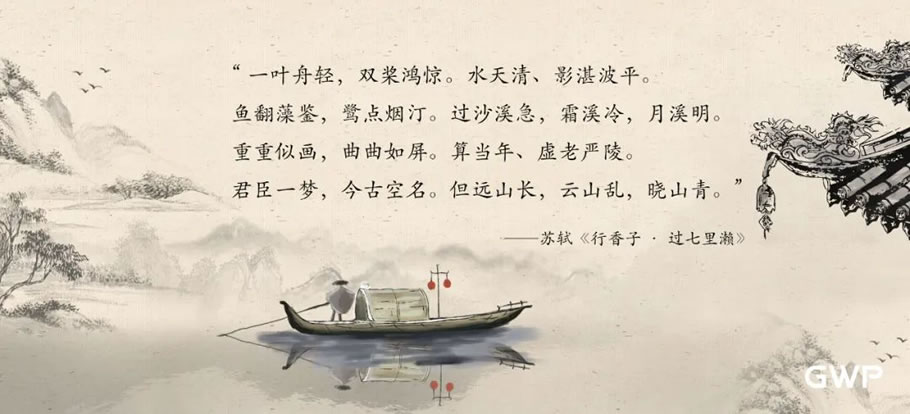 “一叶舟轻，双桨鸿惊。水天清、影湛波平。
鱼翻藻鉴，鹭点烟汀。过沙溪急，霜溪冷，月溪明。
重重似画，曲曲如屏。算当年、虚老严陵。
君臣一梦，今古空名。但远山长，云山乱，晓山青。”
——苏轼《行香子 · 过七里濑》
GWP